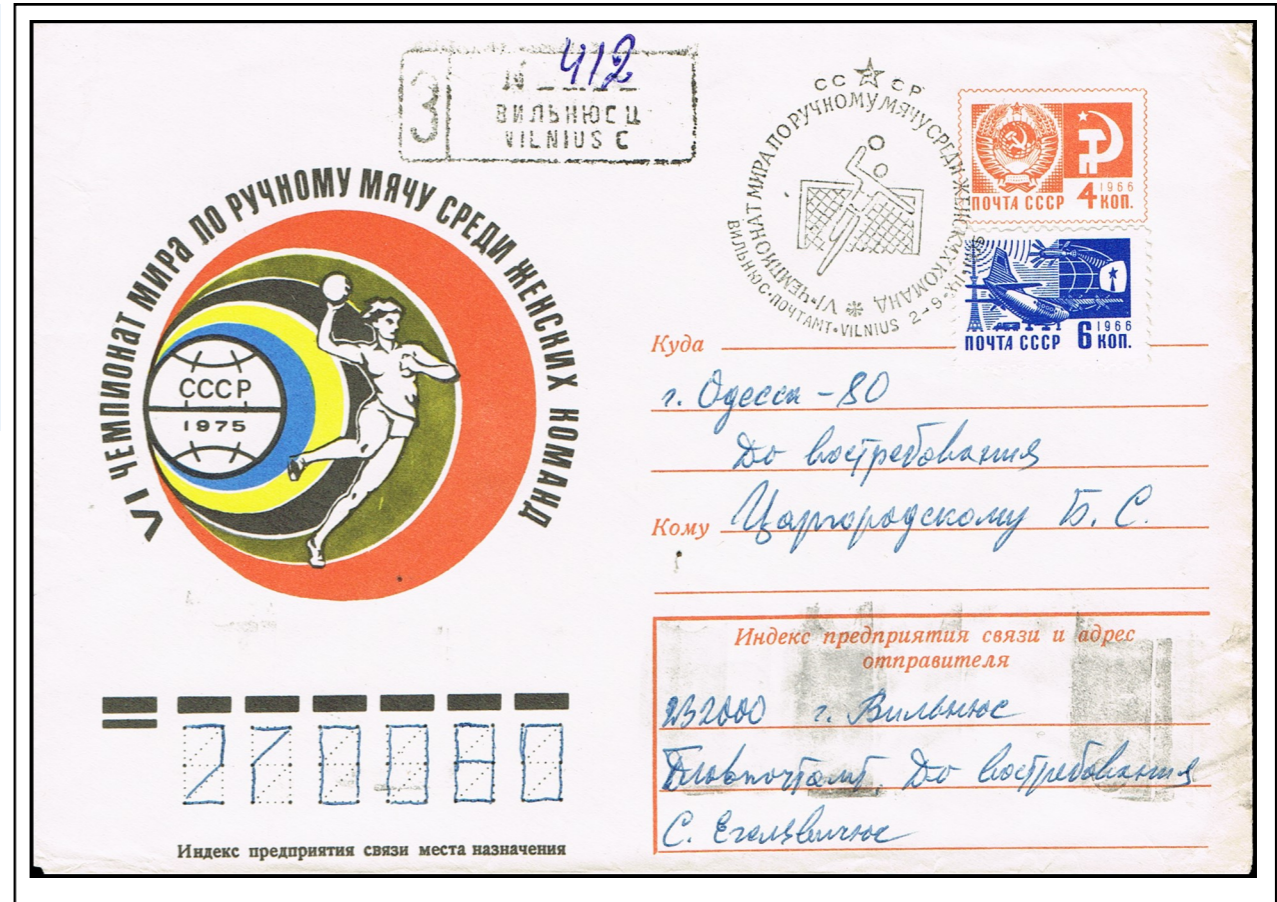 З
№ 412
ВИЛЬНЮС Ц
VILNIUS C
СС СР
VI ЧЕМПИОНАТ МИРА ПО РУЧНОМУ МЯЧУ СРЕДИ ЖЕНСКИХ КОМАНД
ВИЛЬНЮС-ПОЧТАМТ-VILNIUS 2-9
1966
ПОЧТА СССР 4 КОП.
1966
ПОЧТА СССР 6 КОП.
VI ЧЕМПИОНАТ МИРА ПО РУЧНОМУ МЯЧУ СРЕДИ ЖЕНСКИХ КОМАНД
СССР
1975
Куда
г. Одесса-80
До востребования
Кому Царгородскому Б. С.
Индекс предприятия связи и адрес
отправителя
232000 г. Вильнюс
Главпочтамт, До востребования
С.
270080
Индекс предприятия связи места назначения